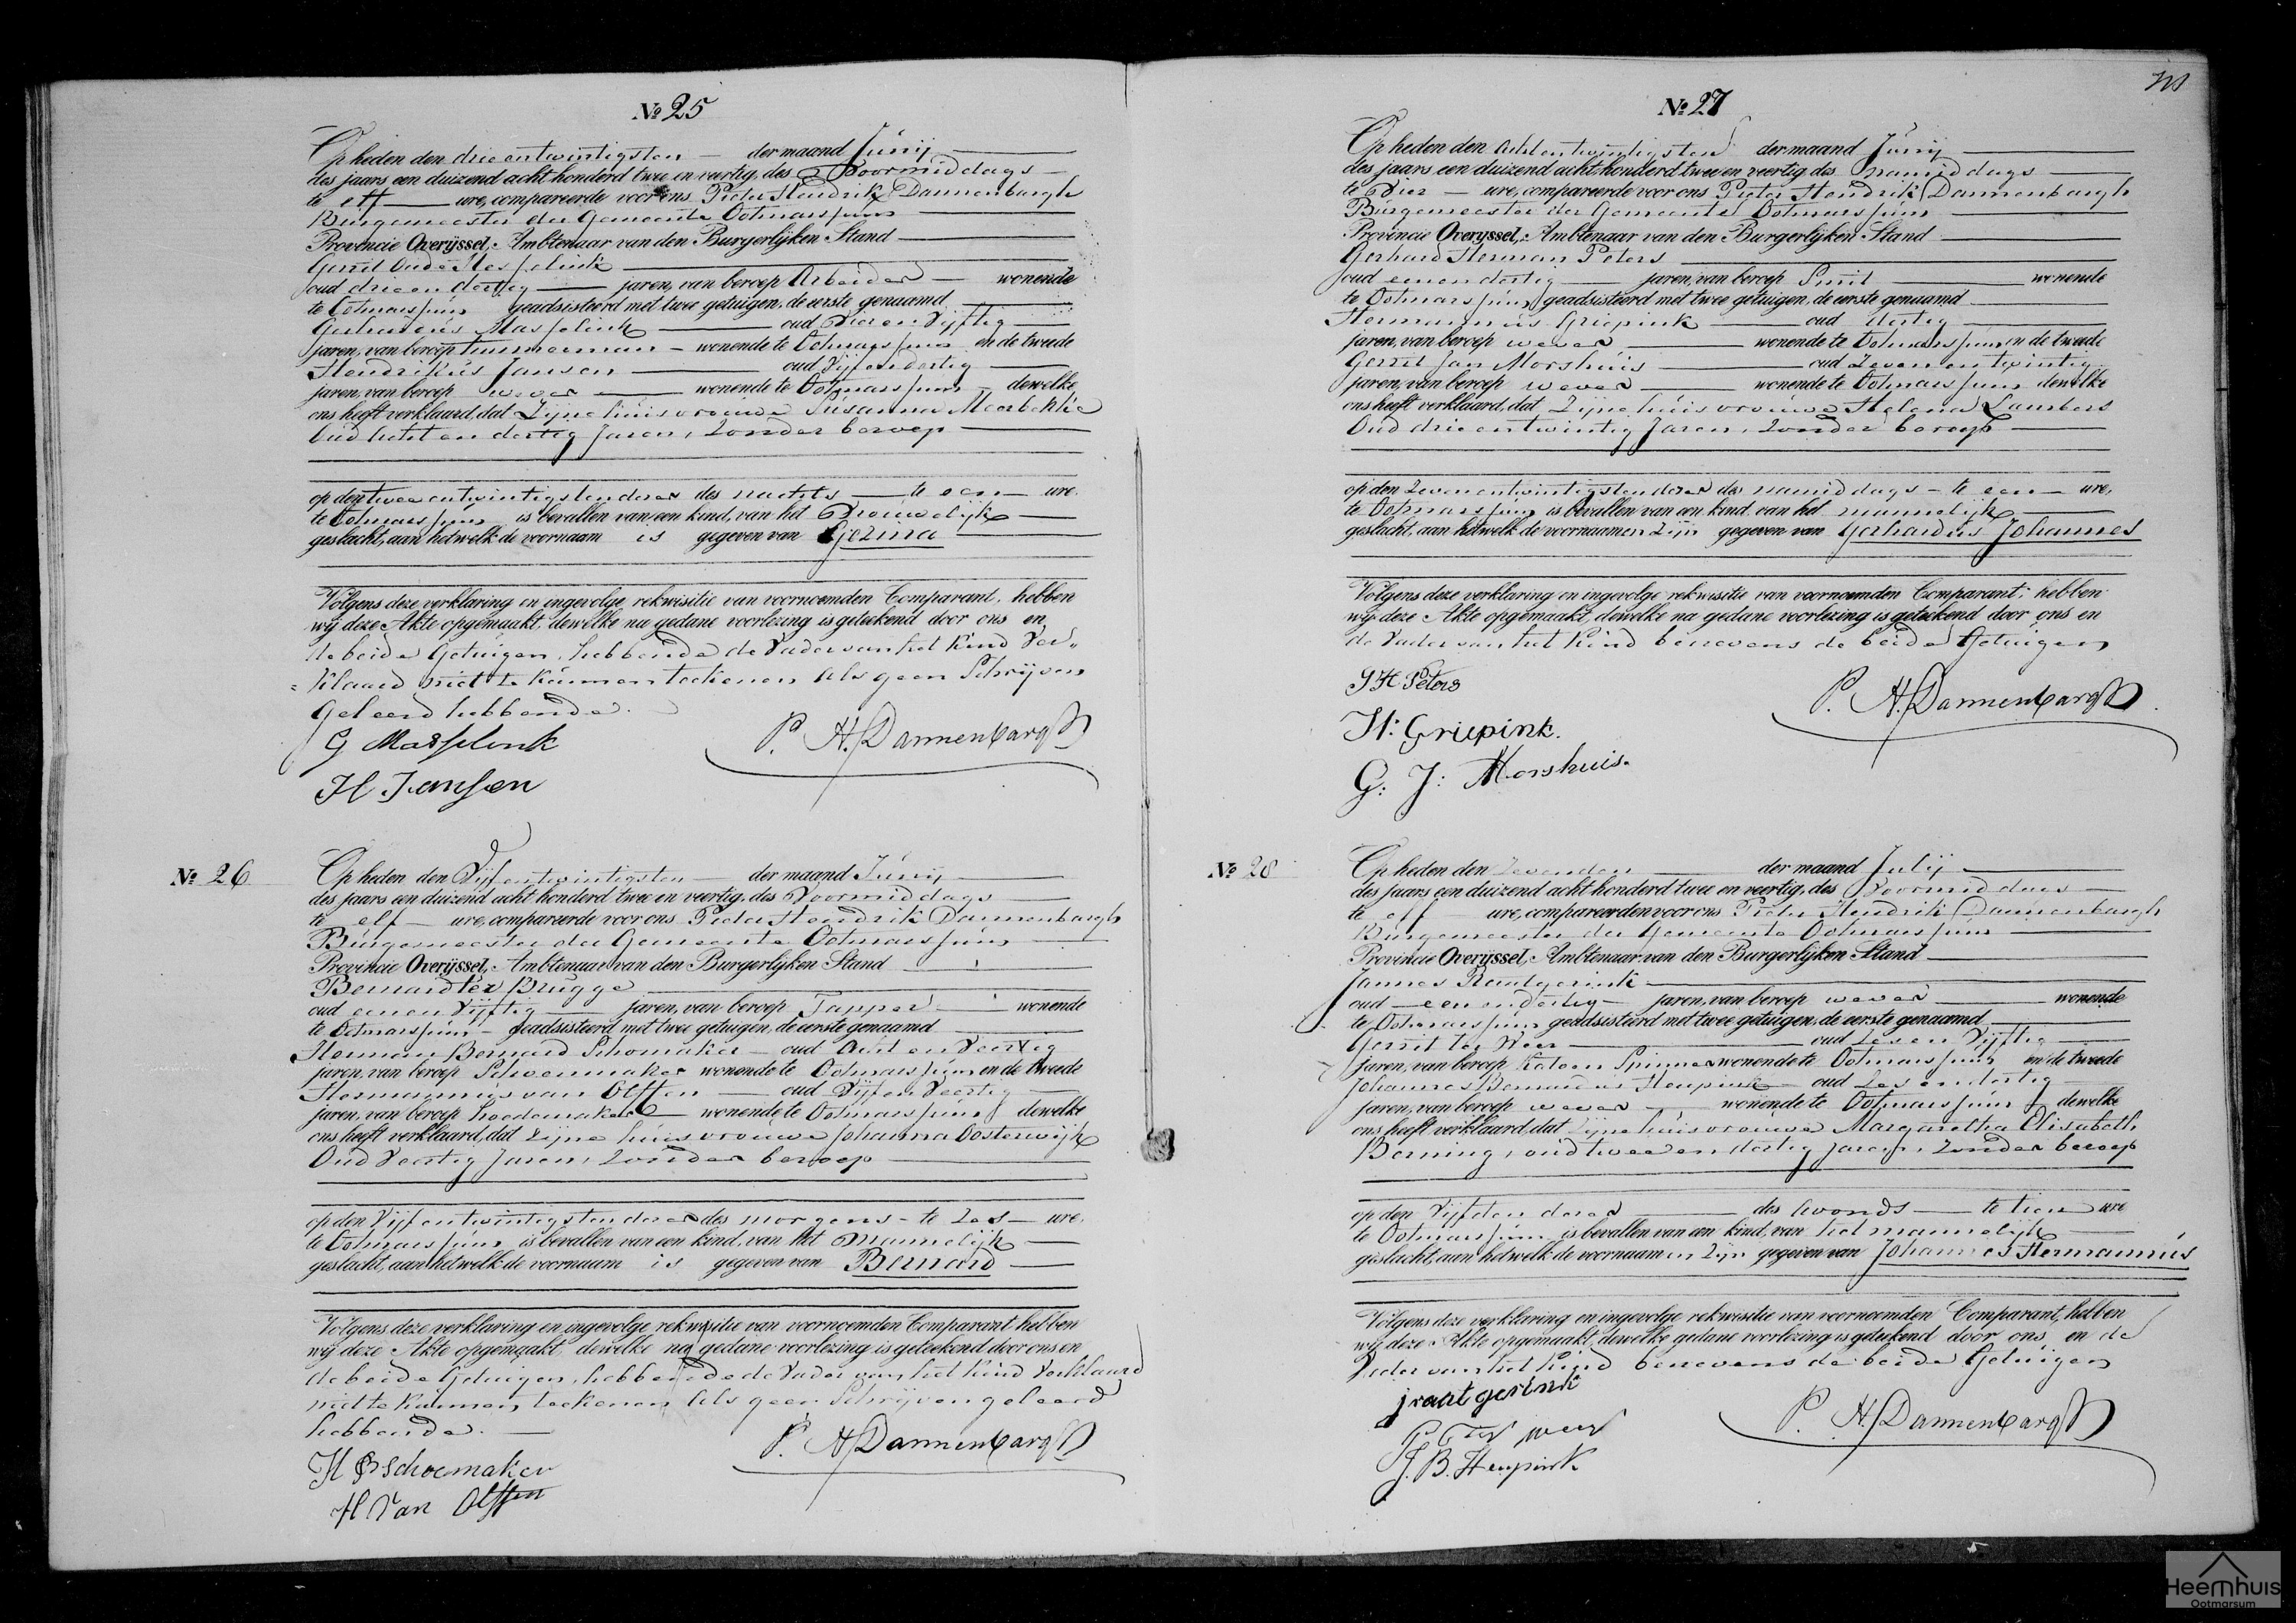 № 25
Op heden den drie entwintigsten der maand Junij
des jaars een duizend acht honderd twee en veertig, des Voormiddags
te elf ure, compareerde voor ons Pieter Hendrik Dannenbargh
Burgemeester der Gemeente Ootmarssum
Provincie Overijssel, Ambtenaar van den Burgerlijken Stand
Gerrit Oude
oud drie en dertig jaren, van beroep Arbeider wonende
te Ootmarssum geadsisteerd met twee getuigen, de eerste genaamd
Gerhardus Masselink oud Vier en Vijftig
jaren, van beroep timmerman wonende te Ootmarssum en de tweede
Hendrikus Jansen oud Vijf en dertig
jaren, van beroep wever wonende te Ootmarssum dewelke
ons heeft verklaard, dat Zijne huisvrouwe Susanna
Oud Acht en dertig Jaren, Zonder beroep
op den twee entwintigsten dezer des nachts te een ure
te Ootmarssum is bevallen van een kind, van het Vrouwelijk
geslacht, aan hetwelk de voornaam is gegeven van Gezina
Volgens deze verklaring en ingevolge rekwisitie van voornoemden Comparant, hebben
wij deze Akte opgemaakt, dewelke na gedane voorlezing is geteekend door ons en
de beide Getuigen, hebbende de Vader van het Kind Ver„
„klaard niet te kunnen teekenen Als geen Schrijven
Geleerd hebbende.
G Masselink
P. H. Dannenbargh
H Jansen
№ 26
Op heden den Vijf entwintigsten der maand Junij
des jaars een duizend acht honderd twee en veertig, des Voormiddags
te elf ure, compareerde voor ons Pieter Hendrik Dannenbargh
Burgemeester der Gemeente Ootmarssum
Provincie Overijssel, Ambtenaar van den Burgerlijken Stand
Bernard ter Brugge
oud een en Vijftig jaren, van beroep Tapper wonende
te Ootmarssum geadsisteerd met twee getuigen, de eerste genaamd
Herman Bernard Schomaker oud Acht en Veertig
jaren, van beroep Schoenmaker wonende te Ootmarssum en de tweede
Hermannus van Olffen oud Vijf en Veertig
jaren, van beroep hoedemaker wonende te Ootmarssum dewelke
ons heeft verklaard, dat Zijne huisvrouwe Johanna Oosterwijk
Oud Veertig Jaren, Zonder beroep
op den Vijf entwintigsten dezer des morgens te Zes ure,
te Ootmarssum is bevallen van een kind, van het Mannelijk
geslacht, aan hetwelk de voornaam is gegeven van Bernard
Volgens deze verklaring en ingevolge rekwisitie van voornoemden Comparant hebben
wij deze Akte opgemaakt, dewelke na gedane voorlezing is geteekend door ons en
de beide Getuigen, hebbende de Vader van het Kind Verklaard
niet te kunnen teekenen Als geen Schrijven geleerd
hebbende.
P. H. Dannenbargh
H B Schoemaker
H Van Olffen
№ 27
Op heden den Acht entwintigsten der maand Junij
des jaars een duizend acht honderd twee en veertig des namiddags
te Vier ure, compareerde voor ons Pieter Hendrik Dannenbargh
Burgemeester der Gemeente Ootmarssum
Provincie Overyssel, Ambtenaar van den Burgerlijken Stand
Gerhard Herman Peters
oud een en dertig jaren, van beroep Smit wonende
te Ootmarssum geadsisteerd met twee getuigen, de eerste genaamd
Hermannus Griepink oud dertig
jaren, van beroep wever wonende te Ootmarssum en de tweede
Gerrit Jan Morshuis oud Zeven en twintig
jaren, van beroep wever wonende te Ootmarssum dewelke
ons heeft verklaard, dat Zijne huisvrouwe Helena Lambers
Oud drie entwintig Jaren, Zonder beroep
op den Zeven entwintigsten dezer des namiddags te een ure,
te Ootmarssum is bevallen van een kind, van het mannelijk
geslacht, aan hetwelk de voornaamen Zijn gegeven van Gerhardus Johannes
Volgens deze verklaring en ingevolge rekwisitie van voornoemden Comparant, hebben
wij deze Akte opgemaakt, dewelke na gedane voorlezing is geteekend door ons en
de Vader van het Kind benevens de beide Getuigen
G H Peters
P. H. Dannenbargh
H: Griepink.
G: J: Morshuis.
№ 28
Op heden den Zevenden der maand Julij
des jaars een duizend acht honderd twee en veertig, des Voormiddags
te elf ure, compareerden voor ons Pieter Hendrik Dannenbargh
Burgemeester der Gemeente Ootmarssum
Provincie Overijssel, Ambtenaar van den Burgerlijken Stand
Jannes Raatgerink
oud een en dertig jaren, van beroep wever wonende
te Ootmarssum geadsisteerd met twee getuigen, de eerste genaamd
Gerrit ter Weer oud Zes en Vijftig
jaren, van beroep Katoen Spinner wonende te Ootmarssum en de tweede
Johannes Bernardus Heupink oud Zes en dertig
jaren, van beroep wever wonende te Ootmarssum dewelke
ons heeft verklaard, dat Zijne huisvrouwe Margaretha Elisabeth
Berning, oud twee en dertig jaren, Zonder beroep
op den Vijfden dezer des Avonds te tien ure
te Ootmarssum is bevallen van een kind, van het mannelijk
geslacht, aan hetwelk de voornaamen Zijn gegeven van Johannes Hermannus
Volgens deze verklaring en ingevolge rekwisitie van voornoemden Comparant, hebben
wij deze Akte opgemaakt, dewelke gedane voorlezing is geteekend door ons en de
Vader van het Kind benevens de beide Getuigen
j raatgerink
P. H. Dannenbargh
G Ter weer
J. B. Heupink
Heemhuis
Ootmarsum